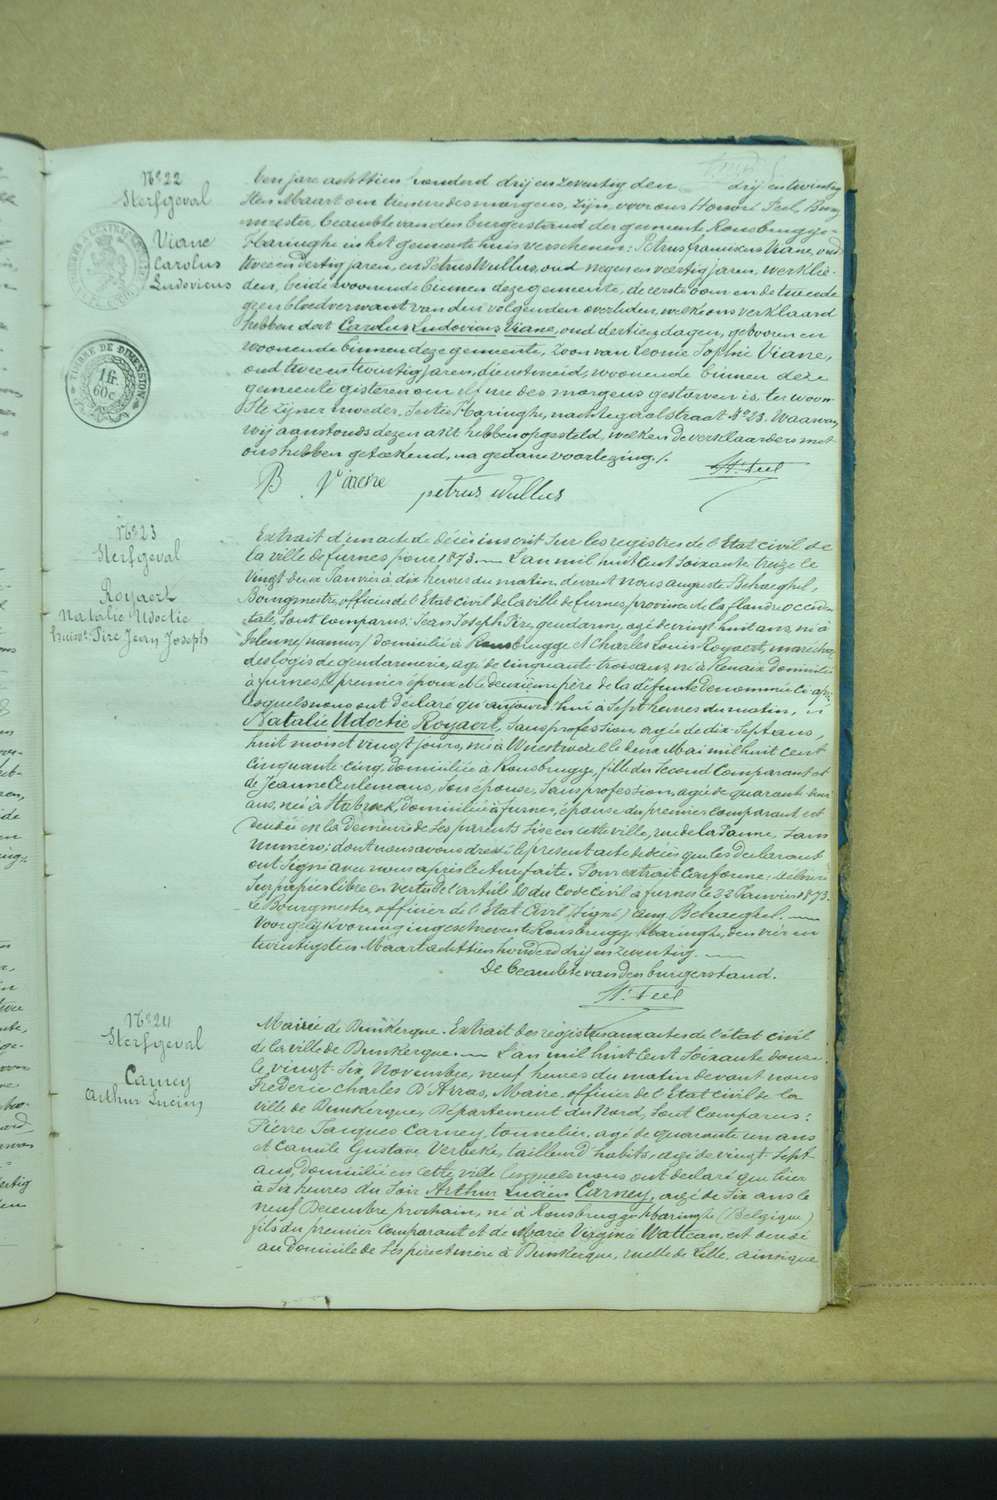 N° 22
Sterfgeval
Viane
Carolus
Ludovicus
TIMBRE DE DIMENSION
1 fr.
60 c.
Den jare achttien honderd drij en zeventig den drij en twintig
sten Maart om tien ure des morgens, zijn voor ons Honoré Feel, Burg
mester, beambte van den burgerstand der gemeente Rousbrugge-
Haringhe in het gemeente huis verschenen: Petrus franciscus Viane, oud
twee en dertig jaren, en Petrus Wullus, oud negen en veertig jaren, werklie-
den, beide woonende binnen deze gemeente, de eerste oom en de tweede
geen bloedverwant van den volgenden overleden, welk ons verklaard
hebben dat Carolus Ludovicus Viane, oud dertien dagen, geboren en
woonende binnen deze gemeente, zoon van Leonie Sophie Viane,
oud twee en twintig jaren, dienstmeid, woonende binnen deze
gemeente gisteren om elf ure des morgens gestorven is, ter woon-
ste zijner moeder, sectie Haringhe, nachtegaal straat N° 23. Waarvan
wij aanstonds dezen akt hebben opgesteld, welken de verklaarders met
ons hebben geteekend, na gedane voorlezing./.
H. Feel
Viaene
petrus Wullus
N° 23
Sterfgeval
Royaert
Natalie Udoctie
huisvr. Pire Jean Joseph
Extrait d'un acte de décès inscrit sur les registres de l'Etat civil de
la ville de furnes pour 1873. L'an mil huit cent soixante treize le
vingt deux Janvier à dix heures du matin, devant nous auguste Behaeghel,
Bourgmestre, officier de l'Etat Civil de la ville de furnes, province de la flandre occiden
tale, sont comparus: Jean Joseph Pire, gendarme, agé de vingt huit ans, né à
(namur) domicilié à Rousbrugge et Charles Louis Royaert, marechal
des logis de gendarmerie, agé de cinquante trois ans, né à Renaix domicilié
à furnes, le premier époux et le deuxième père de la défunte denommée ci après
lesquels nous ont déclaré qu'aujourd'hui à sept heures du matin,
Natalie Udoctie Royaert, sans profession, agée de dix sept ans,
huit mois et vingt jours, née à Wuestwezel le deux Mai mil huit cent
cinquante cinq, domiciliée à Rousbrugge, fille du second Comparant et
de Jeanne Ceulemans, son épouse, sans profession, agée de quarante
ans, née à Stabroek, domiciliée à furnes, épouse du premier comparant est
decédée en la demeure de ses parents sise en cette ville, rue de la Panne, sans
numero; dont nous avons dressé le present acte de décès que les declarant
ont signé avec nous après lecture faite. Pour extrait conforme: delivré
sur papier libre en vertu de l'article 80 du Code Civil à furnes le 22 Janvier 1873.
Le Bourgmestre, officier de l'Etat Civil (signé) aug. Behaeghel.
Voor gelijkvormig ingeschreven te Rousbrugge Haringhe, den vier en
twintigsten Maart achttien honderd drij en zeventig.
De beambte van den burgerstand.
H. Feel
N° 24
Sterfgeval
Carney
Arthur Lucien
Mairie de Dunkerque. Extrait des régistres aux actes de l'état civil
de la ville de Dunkerque. L'an mil huit Cent soixante douze
le vingt six Novembre, neuf heures du matin devant nous
Fréderic Charles D'Arras, Maire, officier de l'Etat Civil de la
ville de Dunkerque, Département du Nord, sont Comparus:
Pierre Jacques Carney, tonnelier, agé de quarante un ans
et Camile Gustave Verbeke, tailleur d'habits, agé de vingt sept
ans, domiciliés en cette ville lesquels nous ont déclaré que hier
à six heures du soir Arthur Lucien Carney, agé de six ans le
neuf Decembre prochain, né à Rousbrugge-Haringhe (Belgique)
fils du premier Comparant et de Marie Virginie Watteau, est decédé
au domicile de ses père et mère à Dunkerque, ruelle de Lille, ainsi que